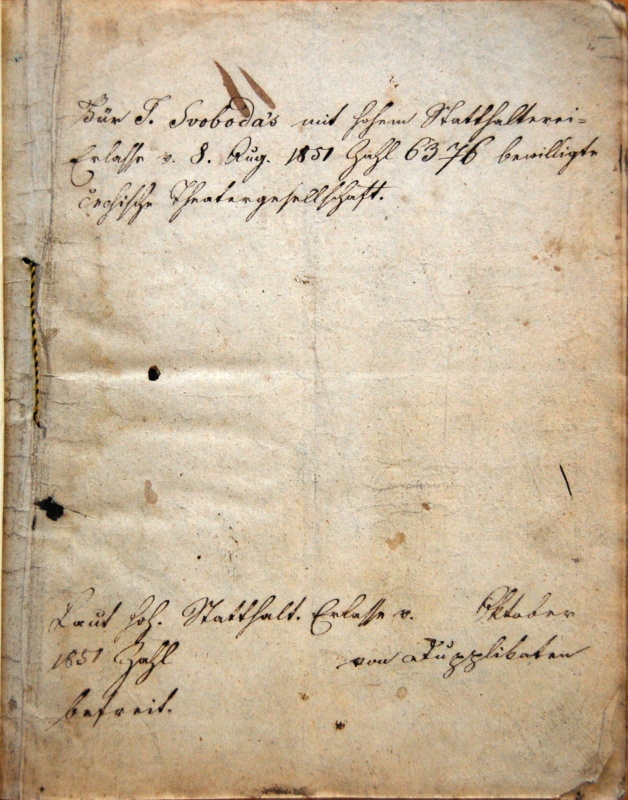 Für J. Svoboda's mit hohem Statthalterei-
Erlasse v. 8. Aug. 1851 Zahl 6376 bewilligte
čechische Theatergesellschaft.
Laut hoh. Statthalt. Erlasse v. Oktober
1851 Zahl von Dupplikaten
befreit.